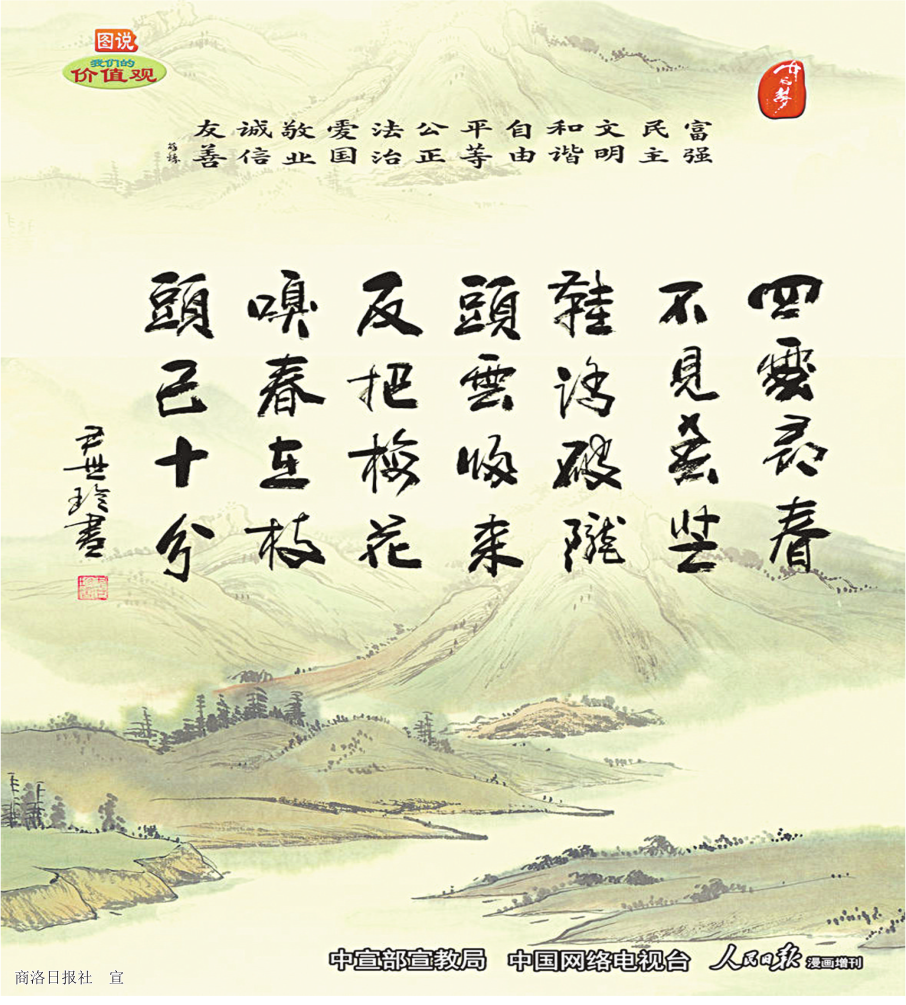 图说
我们的
价值观
中国梦
富强
民主
文明
和谐
自由
平等
公正
法治
爱国
敬业
诚信
友善
四處尋春
不見春芒
鞋踏破隴
頭雲歸来
反把梅花
嗅春在枝
頭已十分
尹世玲書
中宣部宣教局 中国网络电视台 人民日報 漫画增刊
商洛日报社 宣